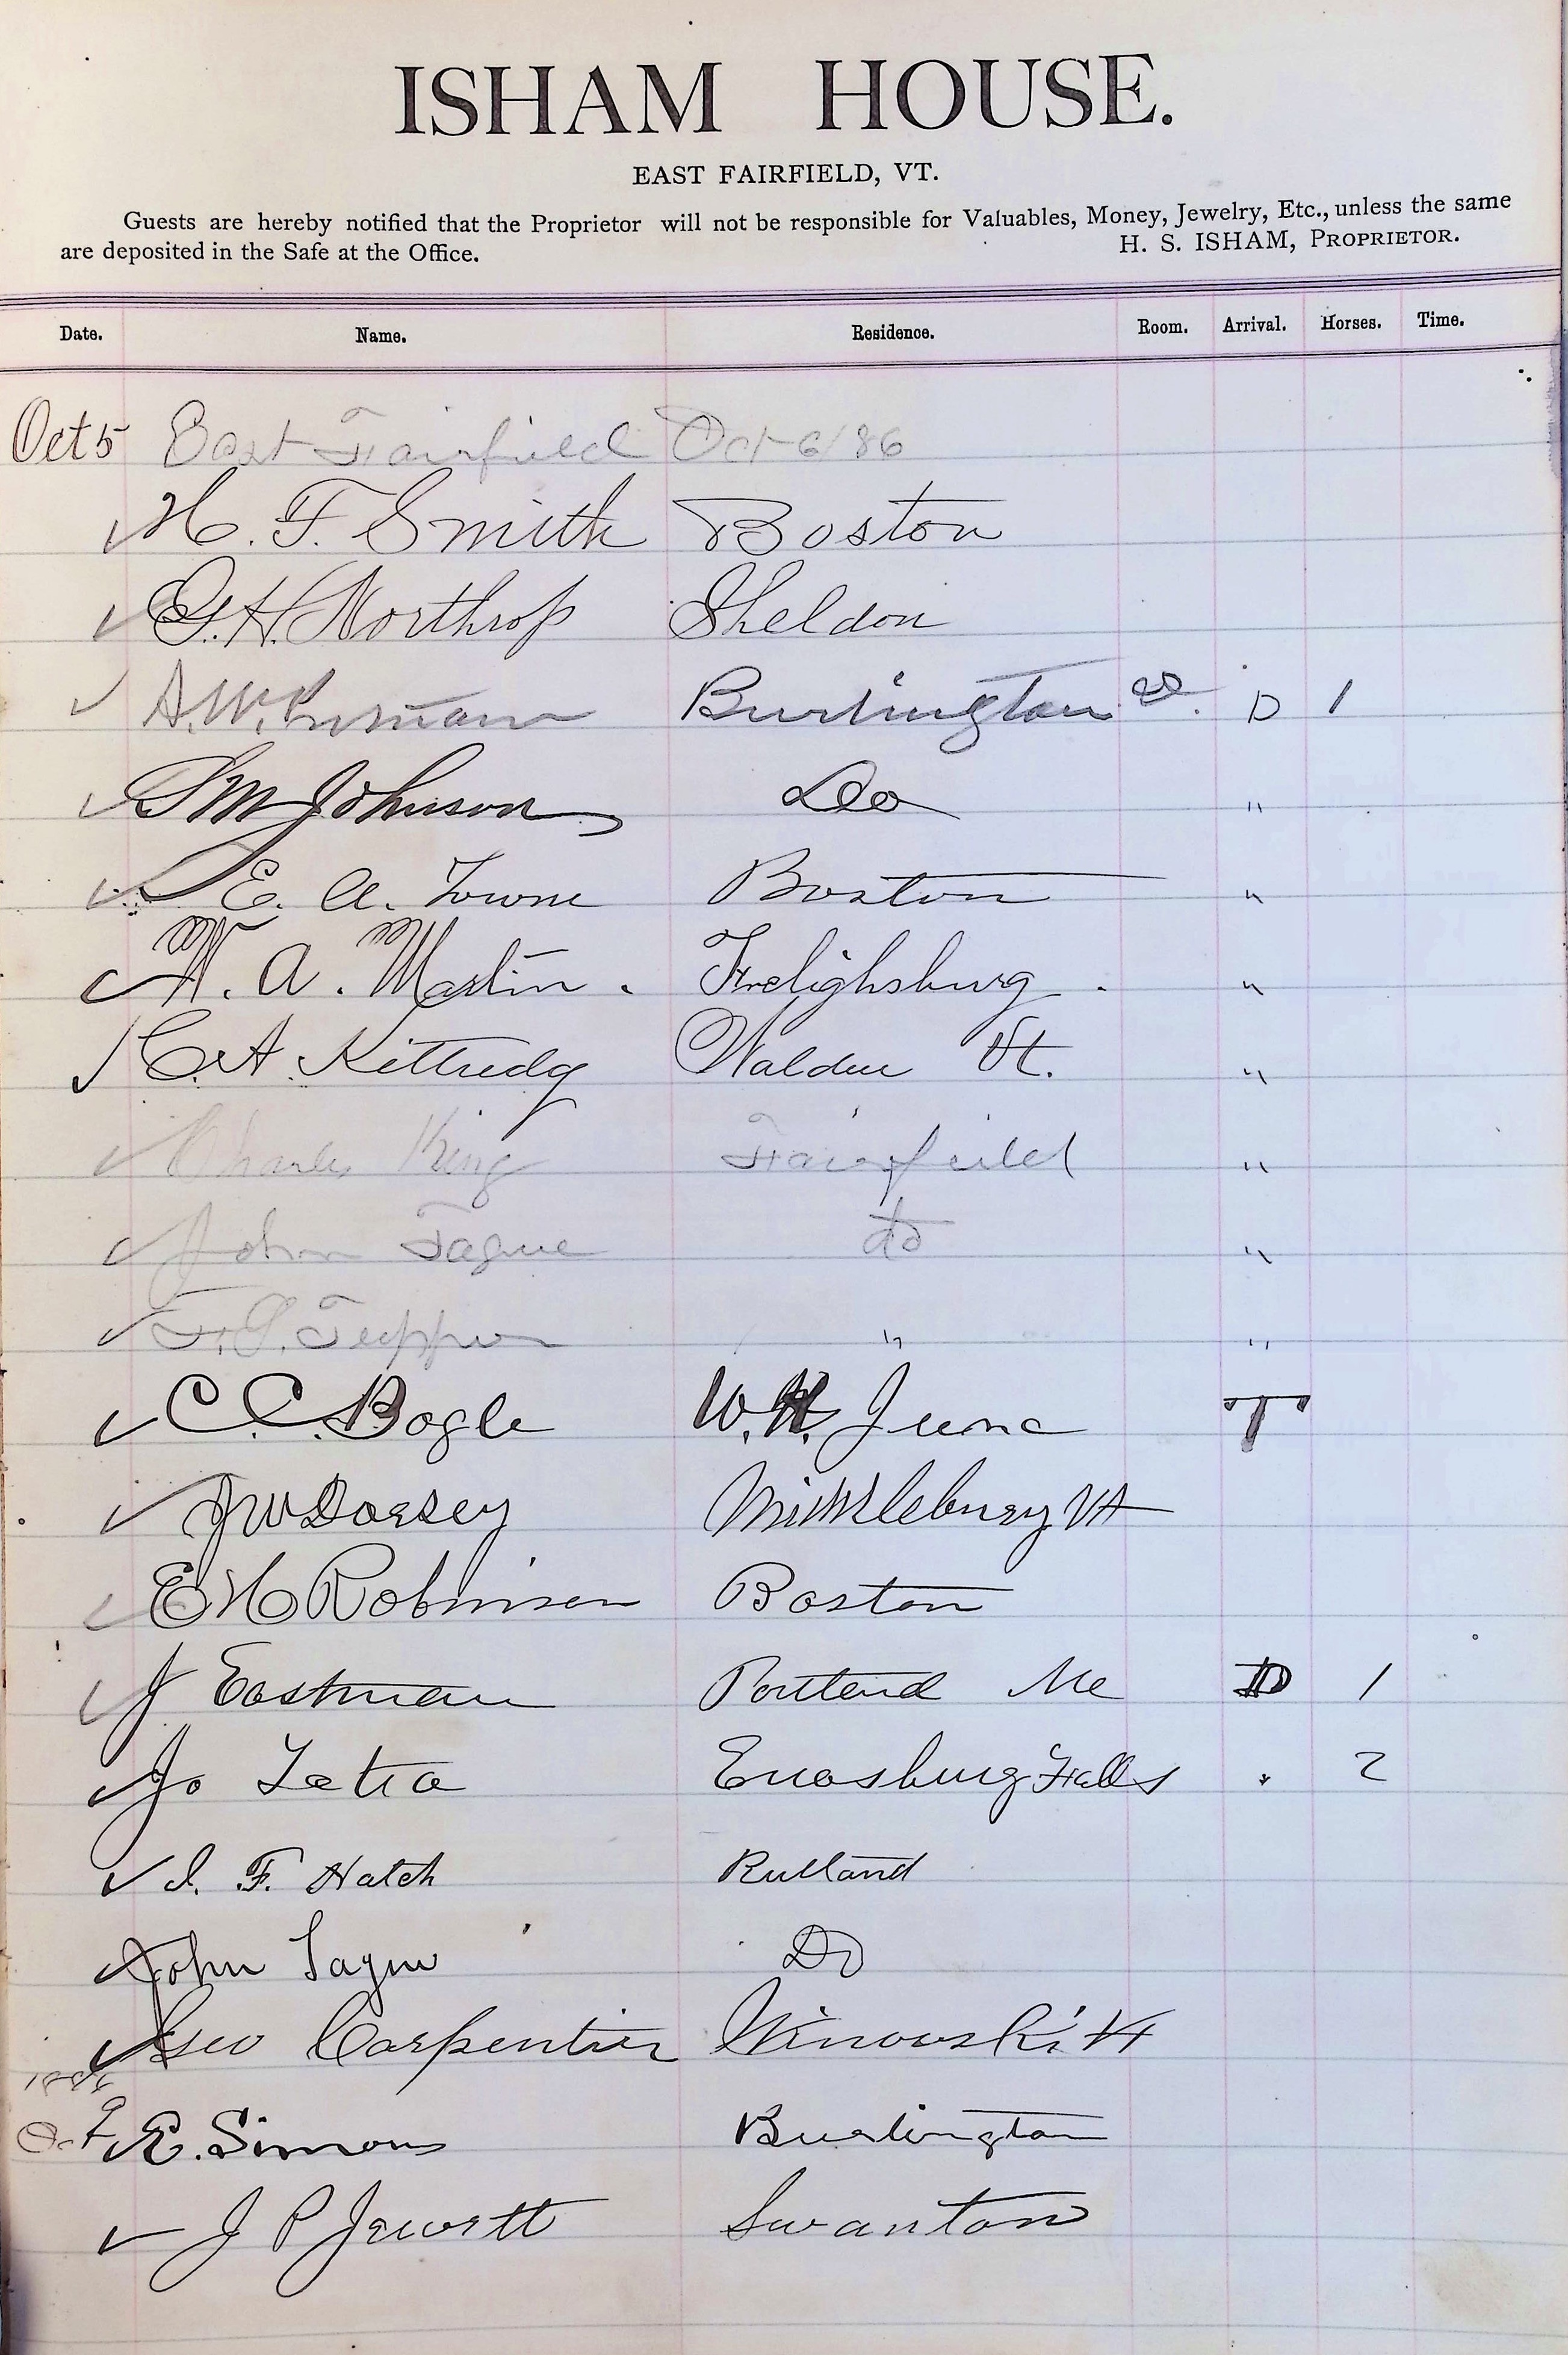 ISHAM HOUSE.
EAST FAIRFIELD, VT.
Guests are hereby notified that the Proprietor will not be responsible for Valuables, Money, Jewelry, Etc., unless the same
are deposited in the Safe at the Office. H. S. ISHAM, PROPRIETOR.
Date. Name. Residence. Room. Arrival. Horses. Time.
Oct 5 East Fairfield Oct 6/86
H. F. Smith Boston
G. H. Northrop Sheldon
A. W. Burlington D 1
S M Johnson Do "
E. A. Towne Boston "
W. A. Martin. Frelighsburg. "
C. A. Kittredg Walden Vt. "
Charles King Fairfield "
John Tague do "
F. S. " "
C. C. Bogle W. R. June T
J W Dorsey Middlebury Vt
E H Robinson Boston
J Eastman Portland Me D 1
Jo Enosburg Falls " 2
I. F. Hatch Rutland
John Tague Do
Geo Carpenter Winooski Vt
1886
Oct 7 E. Simons Burlington
J P Jewett Swanton